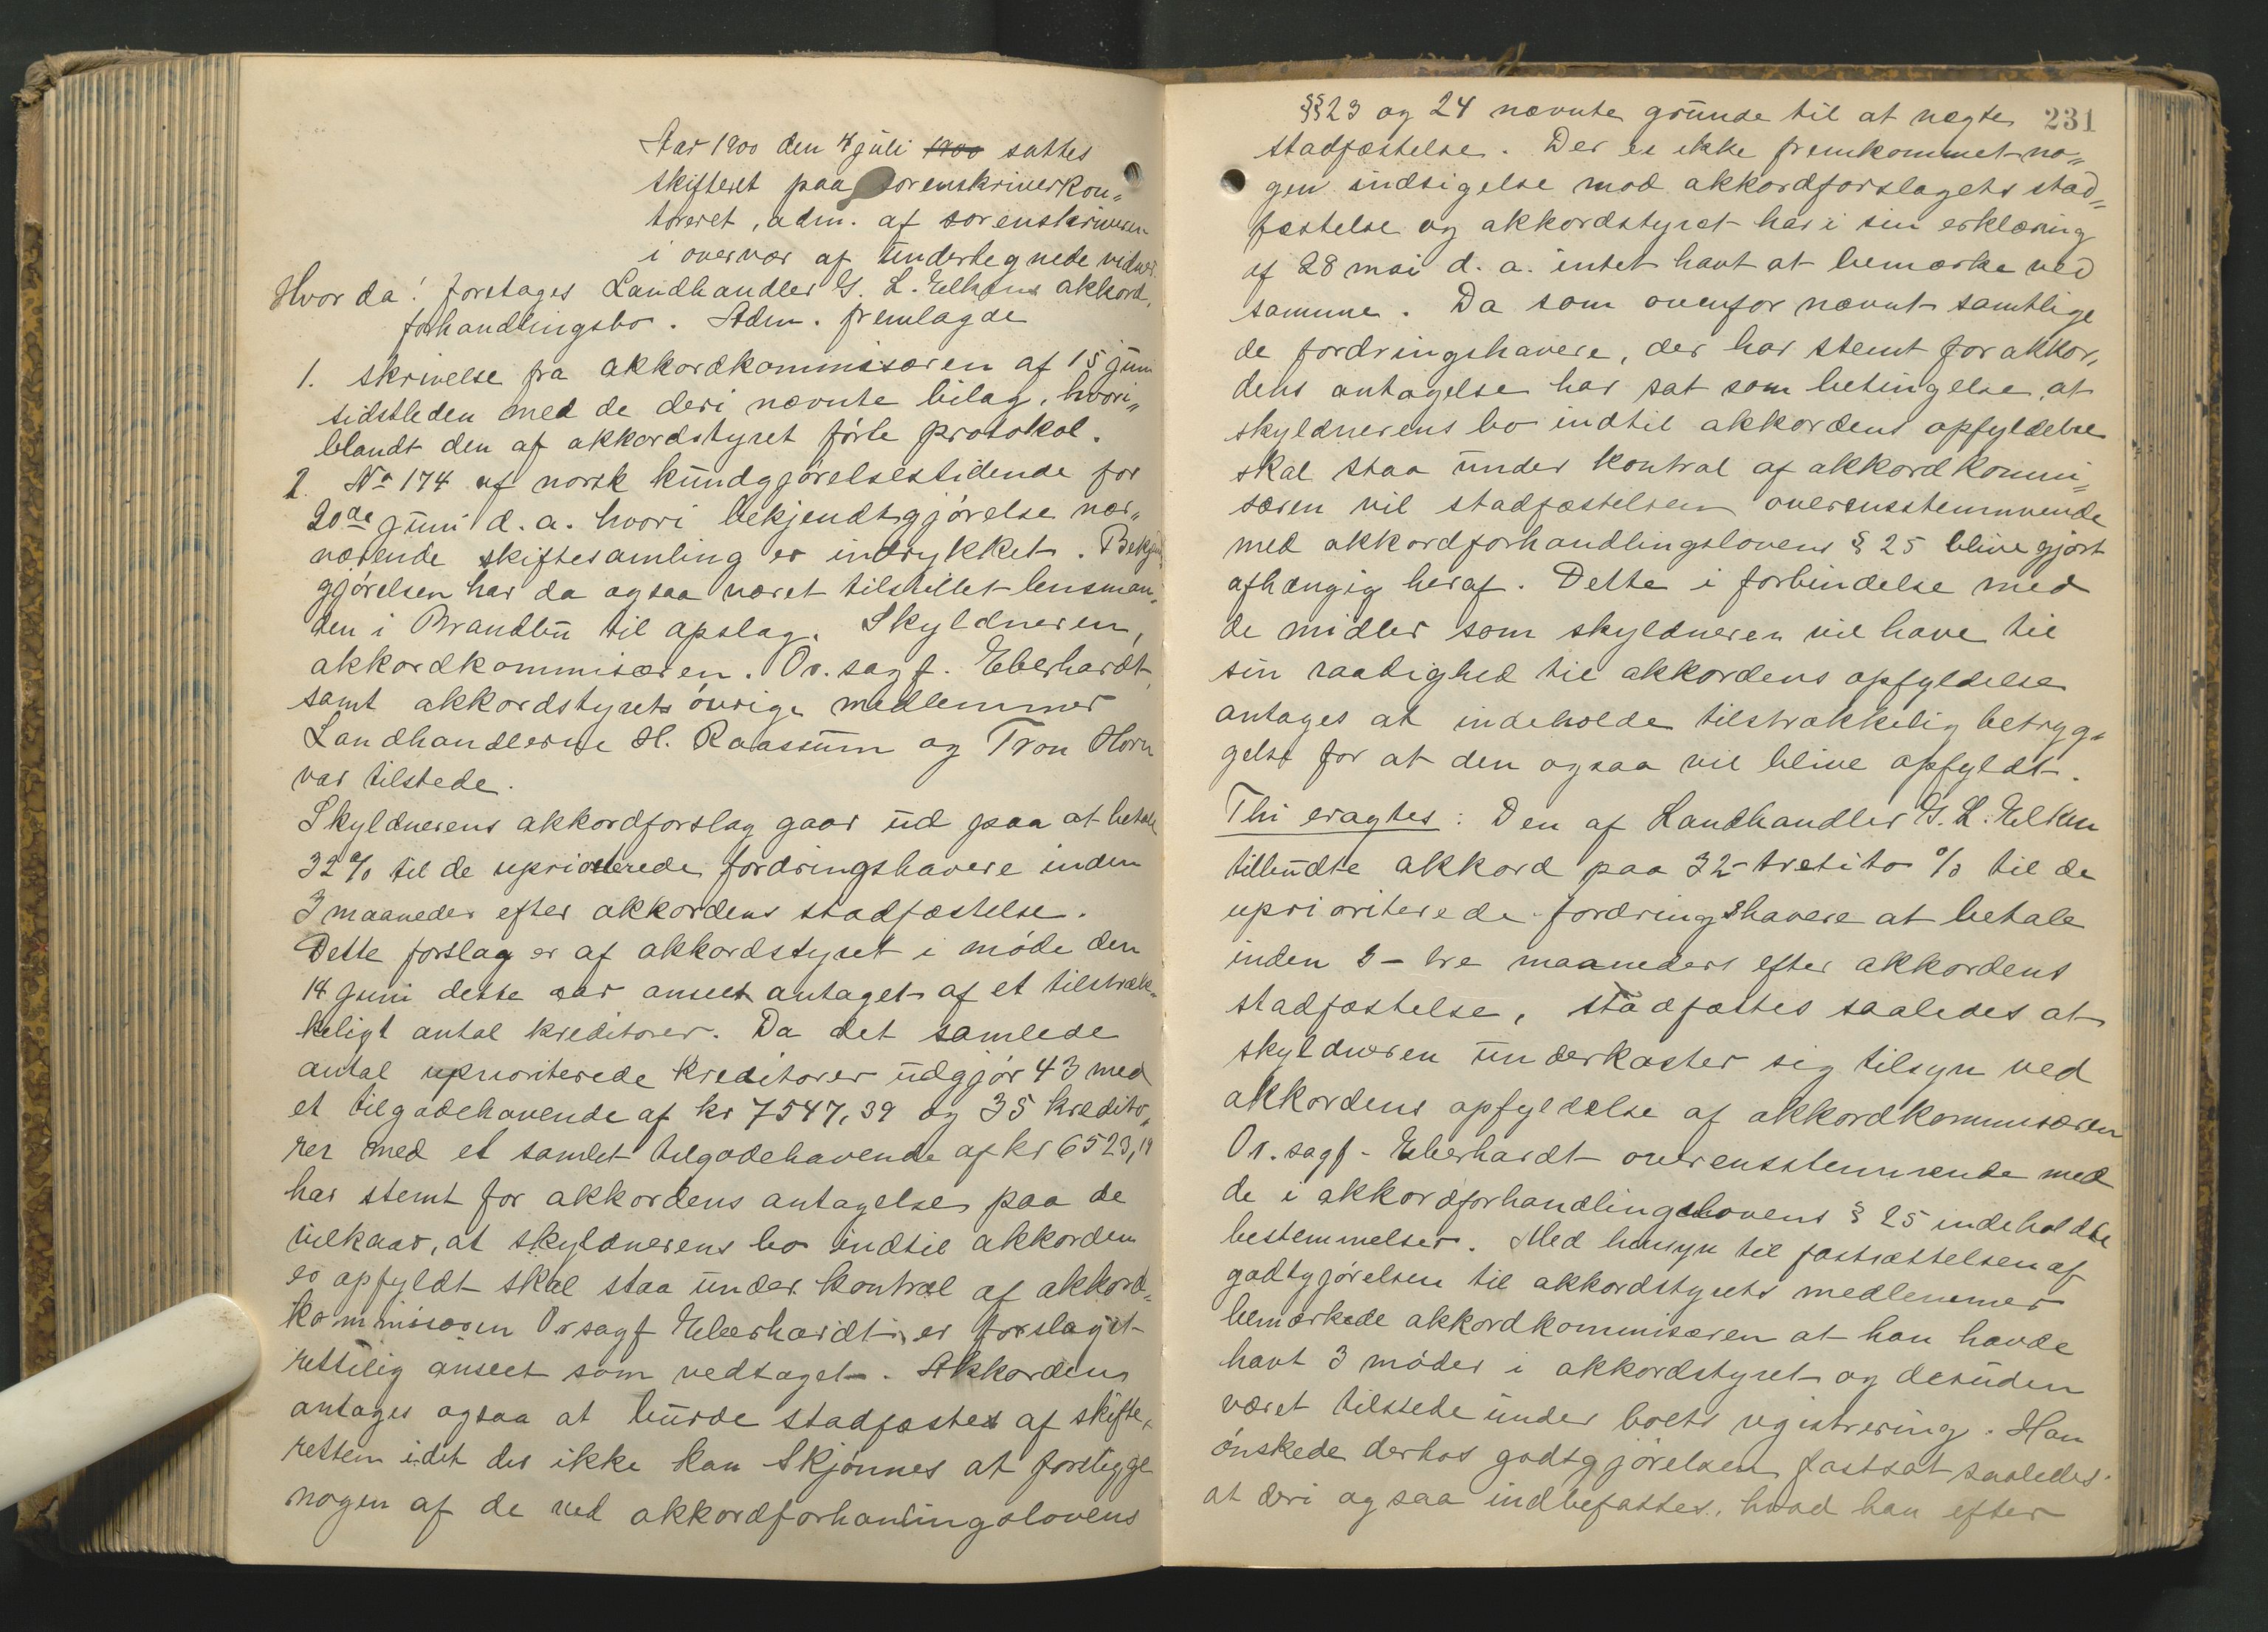 Aar 1900 den 4 juli 1900 sattes
skifteret paa sorenskriverkon„
toreret, adm. af sorenskriveren
i overvær af undertegnede vidner.
Hvor da! foretages Landhandler G. L. Elkens akkord„
forhandlingsbo. Adm. fremlagde
1. skrivelse fra akkordkommissæren af 15 juni
sidstleden med de deri nævnte bilag, hvori„
blandt den af akkordstyret førte protokol.
2. No 174 af norsk kundgjørelsestidende for
20de juni d. a. hvori bekjendtgjørelse nær„
værende skiftesamling er indrykket. Bekjendt
gjørelsen har da ogsaa været tilstillet lensman„
den i Brandbu til opslag. Skyldneren,
akkordkommisæren. Or. sagf. Eberhardt,
samt akkordstyrets øvrige medlemmer
Landhandlerne H. Raassum og Tron Horn
var tilstede.
Skyldnerens akkordforslag gaar ud paa at betale
32% til de uprioriterede fordringshavere inden
3 maaneder efter akkordens stadfæstelse.
Dette forslag er af akkordstyret i møde den
14 juni dette aar anseet antaget af et tilstræk„
keligt antal kreditorer. Da det samlede
antal uprioriterede kreditorer udgjør 43 med
et tilgodehavende af kr 7547,39 og 35 kredito„
rer med et samlet tilgodehavende af kr 6523,19
har stemt for akkordens antagelse paa de
vilkaar, at skyldnerens bo indtil akkorden
er opfyldt skal staa under kontrol af akkord„
kommissæren Orsagf Eberhardt, er forslaget
rettilig anseet som vedtaget. Akkorden
antages ogsaa at burde stadfæstes af skifte„
retten idet der ikke kan skjønnes at foreligge
nogen af de ved akkordforhanlingslovens
231
§§23 og 24 nævnte grunde til at nægte
stadfæstelse. Der er ikke fremkommet no„
gen indsigelse mod akkordforslagets stad„
fæstelse og akkordstyret har i sin erklæring
af 28 mai d. a. intet havt at bemærke ved
samme. Da som ovenfor nævnt samtlige
de fordringshavere, der har stemt for akkor„
dens antagelse har sat som betingelse, at
skyldnerens bo indtil akkordens opfyldelse
skal staa under kontrol af akkordkommi„
særen vil stadfæstelsen overensstemmende
med akkordforhandlingslovens § 25 blive gjort
afhængig heraf. Dette i forbindelse med
de midler som skyldneren vil have til
sin raadighed til akkordens opfyldelse
antages at indeholde tilstrækkelig betryg„
gelse for at den ogsaa vil blive opfyldt.
Thi eragtes: Den af Landhandler G. L. Elken
tilbudte akkord paa 32-tretito % til de
uprioriterede fordringshavere at betale
inden 3 - tre maaneder efter akkordens
stadfæstelse, stadfæstes saaledes at
skyldneren underkaster sig tilsyn ved
akkordens opfyldelse af akkordkommisæren
Or. sagf. Eberhardt overensstemmende med
de i akkordforhandlingslovens § 25 indeholdte
bestemmelser. Med hensyn til fastsættelsen af
godtgjørelsen til akkordstyrets medlemmer
bemærkede akkordkommisæren at han havde
havt 3 møder i akkordstyret og desuden
været tilstede under boets registrering. Han
ønskede derhos godtgjørelsen fastsat saaledes
at deri ogsaa indbefattes, hvad han efter